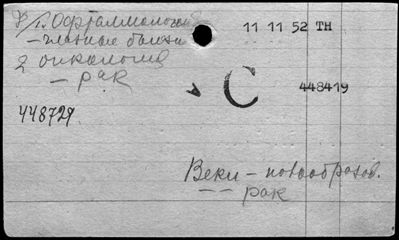 1. Офтальмология
11 11 52 TH
– глазные болезни
2 онкология
– рак
С
448419
448729.
Веки – новообразов.
– – рак